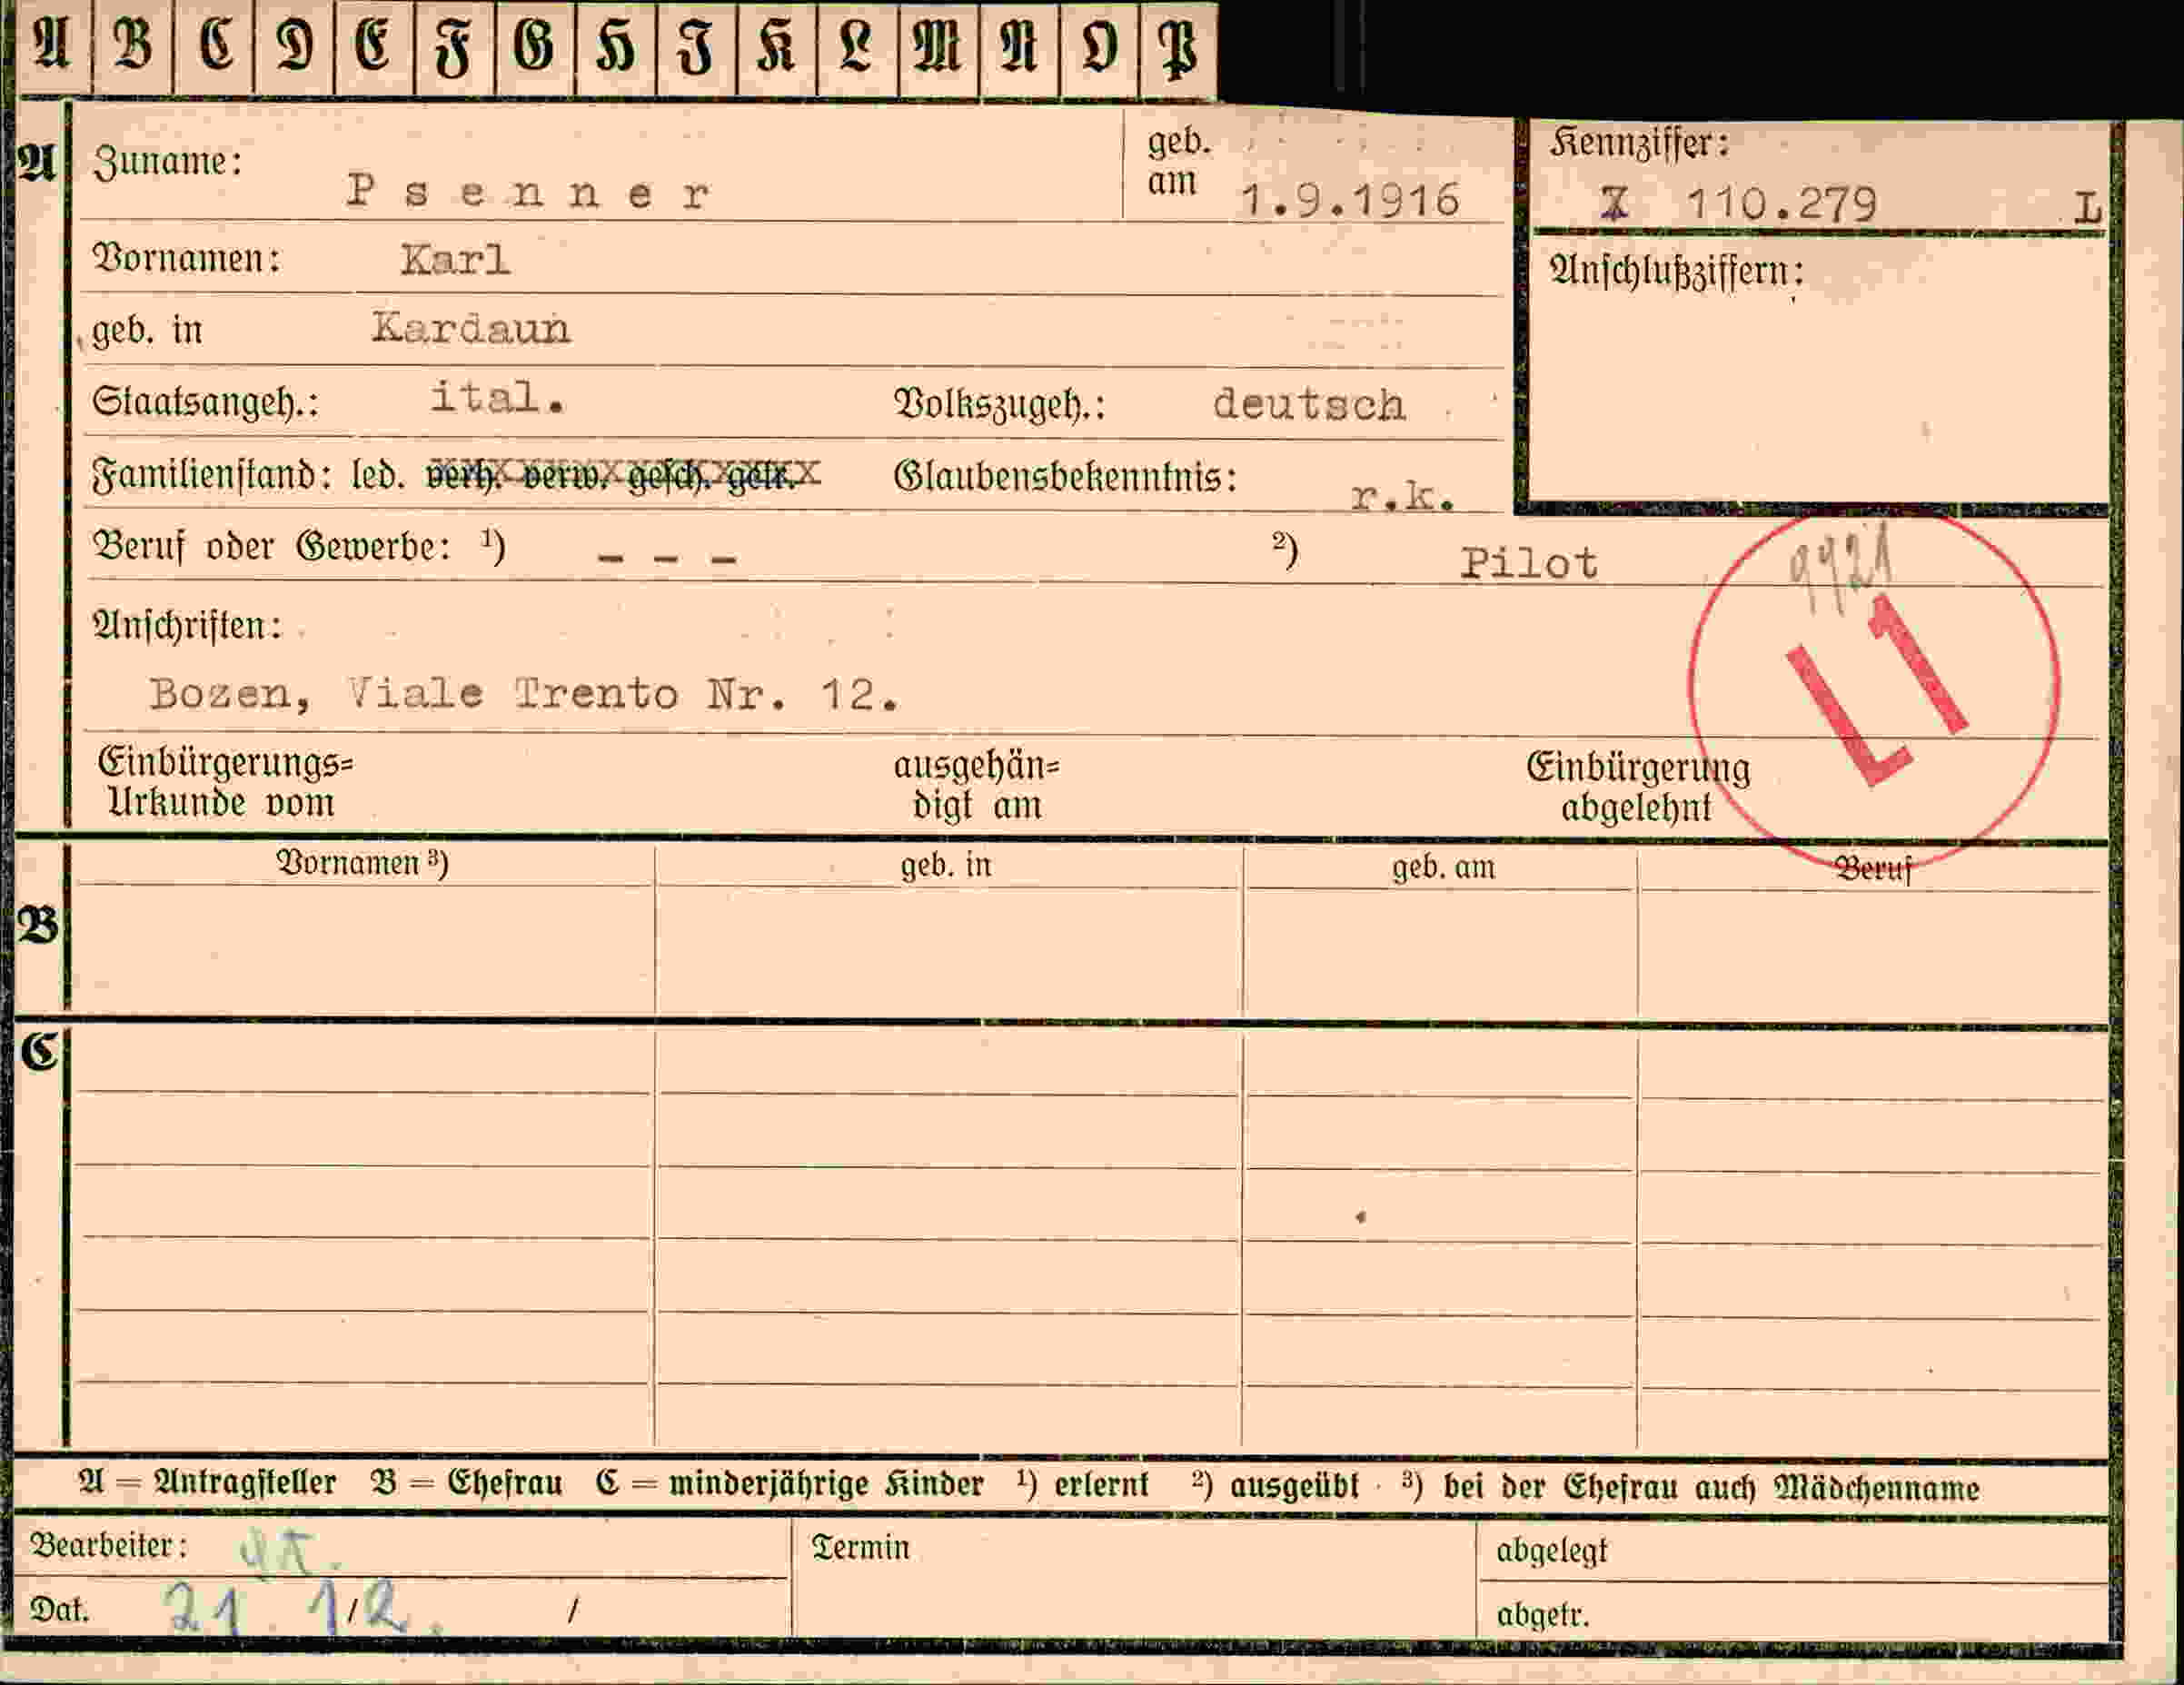 A B C D E F G H J K L M N O P
A Zuname: Psenner geb. am 1.9.1916 Kennziffer: 110.279 L
Vornamen: Karl Anschlußziffern:
geb. in Kardaun
Staatsangeh.: ital. Volkszugeh.: deutsch
Familienstand: led. verh. verw. gesch. getr. Glaubensbekenntnis: r.k.
Beruf oder Gewerbe: 1) - - - 2) Pilot
L1
Anschriften:
Bozen, Viale Trento Nr. 12.
Einbürgerungs= ausgehän= Einbürgerung
Urkunde vom digt am abgelehnt
Vornamen 3) geb. in geb. am Beruf
B
C
A = Antragsteller B = Ehefrau C = minderjährige Kinder 1) erlernt 2) ausgeübt 3) bei der Ehefrau auch Mädchenname
Bearbeiter: Termin abgelegt
Dat. 21. 12. / abgetr.